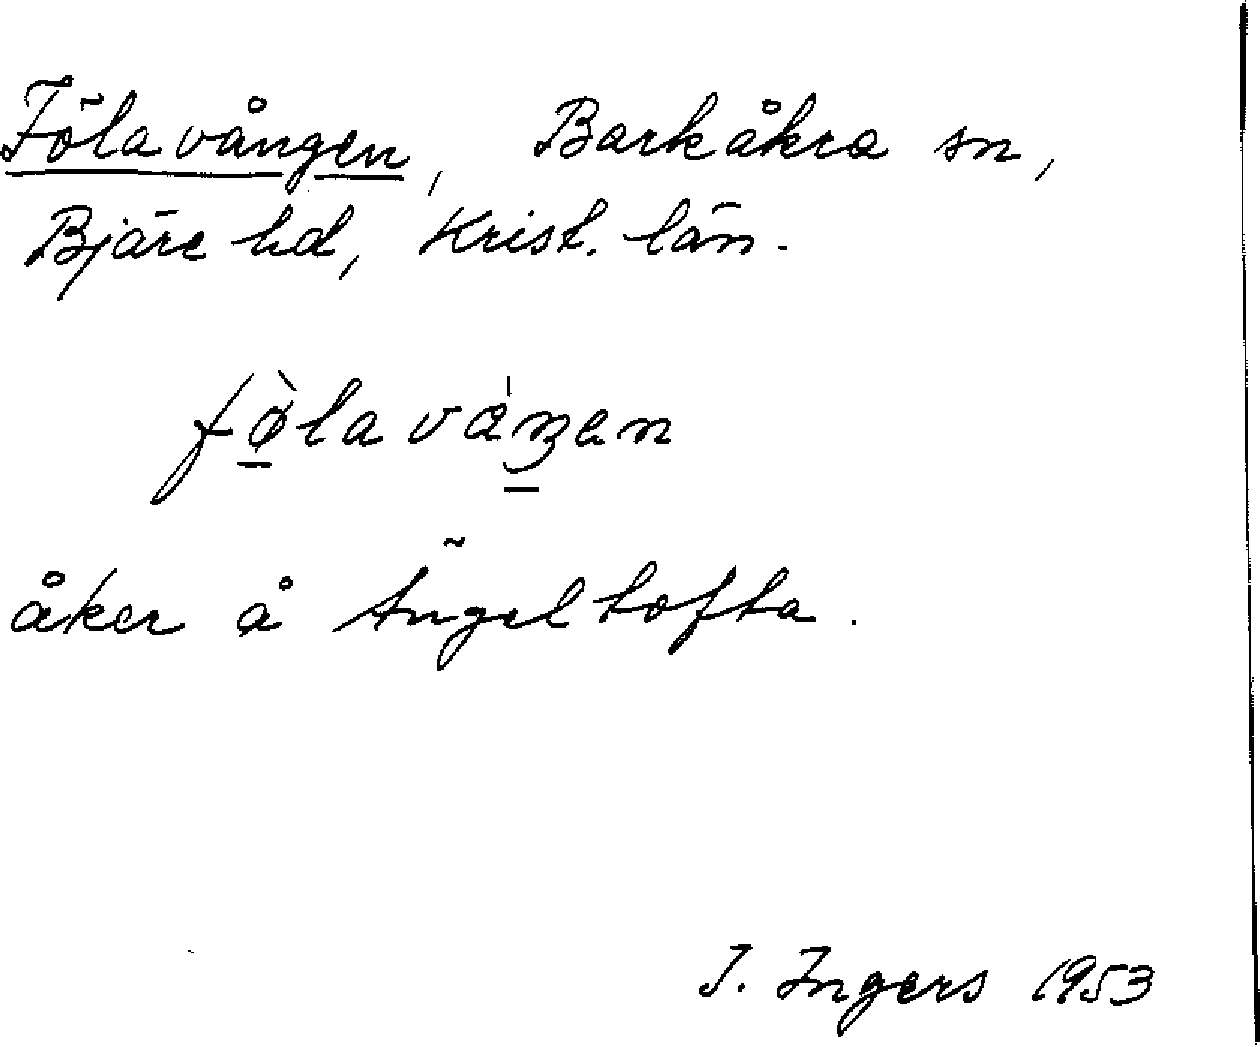 Fölavången, Barkåkra sn,
Bjäre hd, Krist. län.
fø̀lavaŋen
åker å Ängeltofta.
I. Ingers 1953